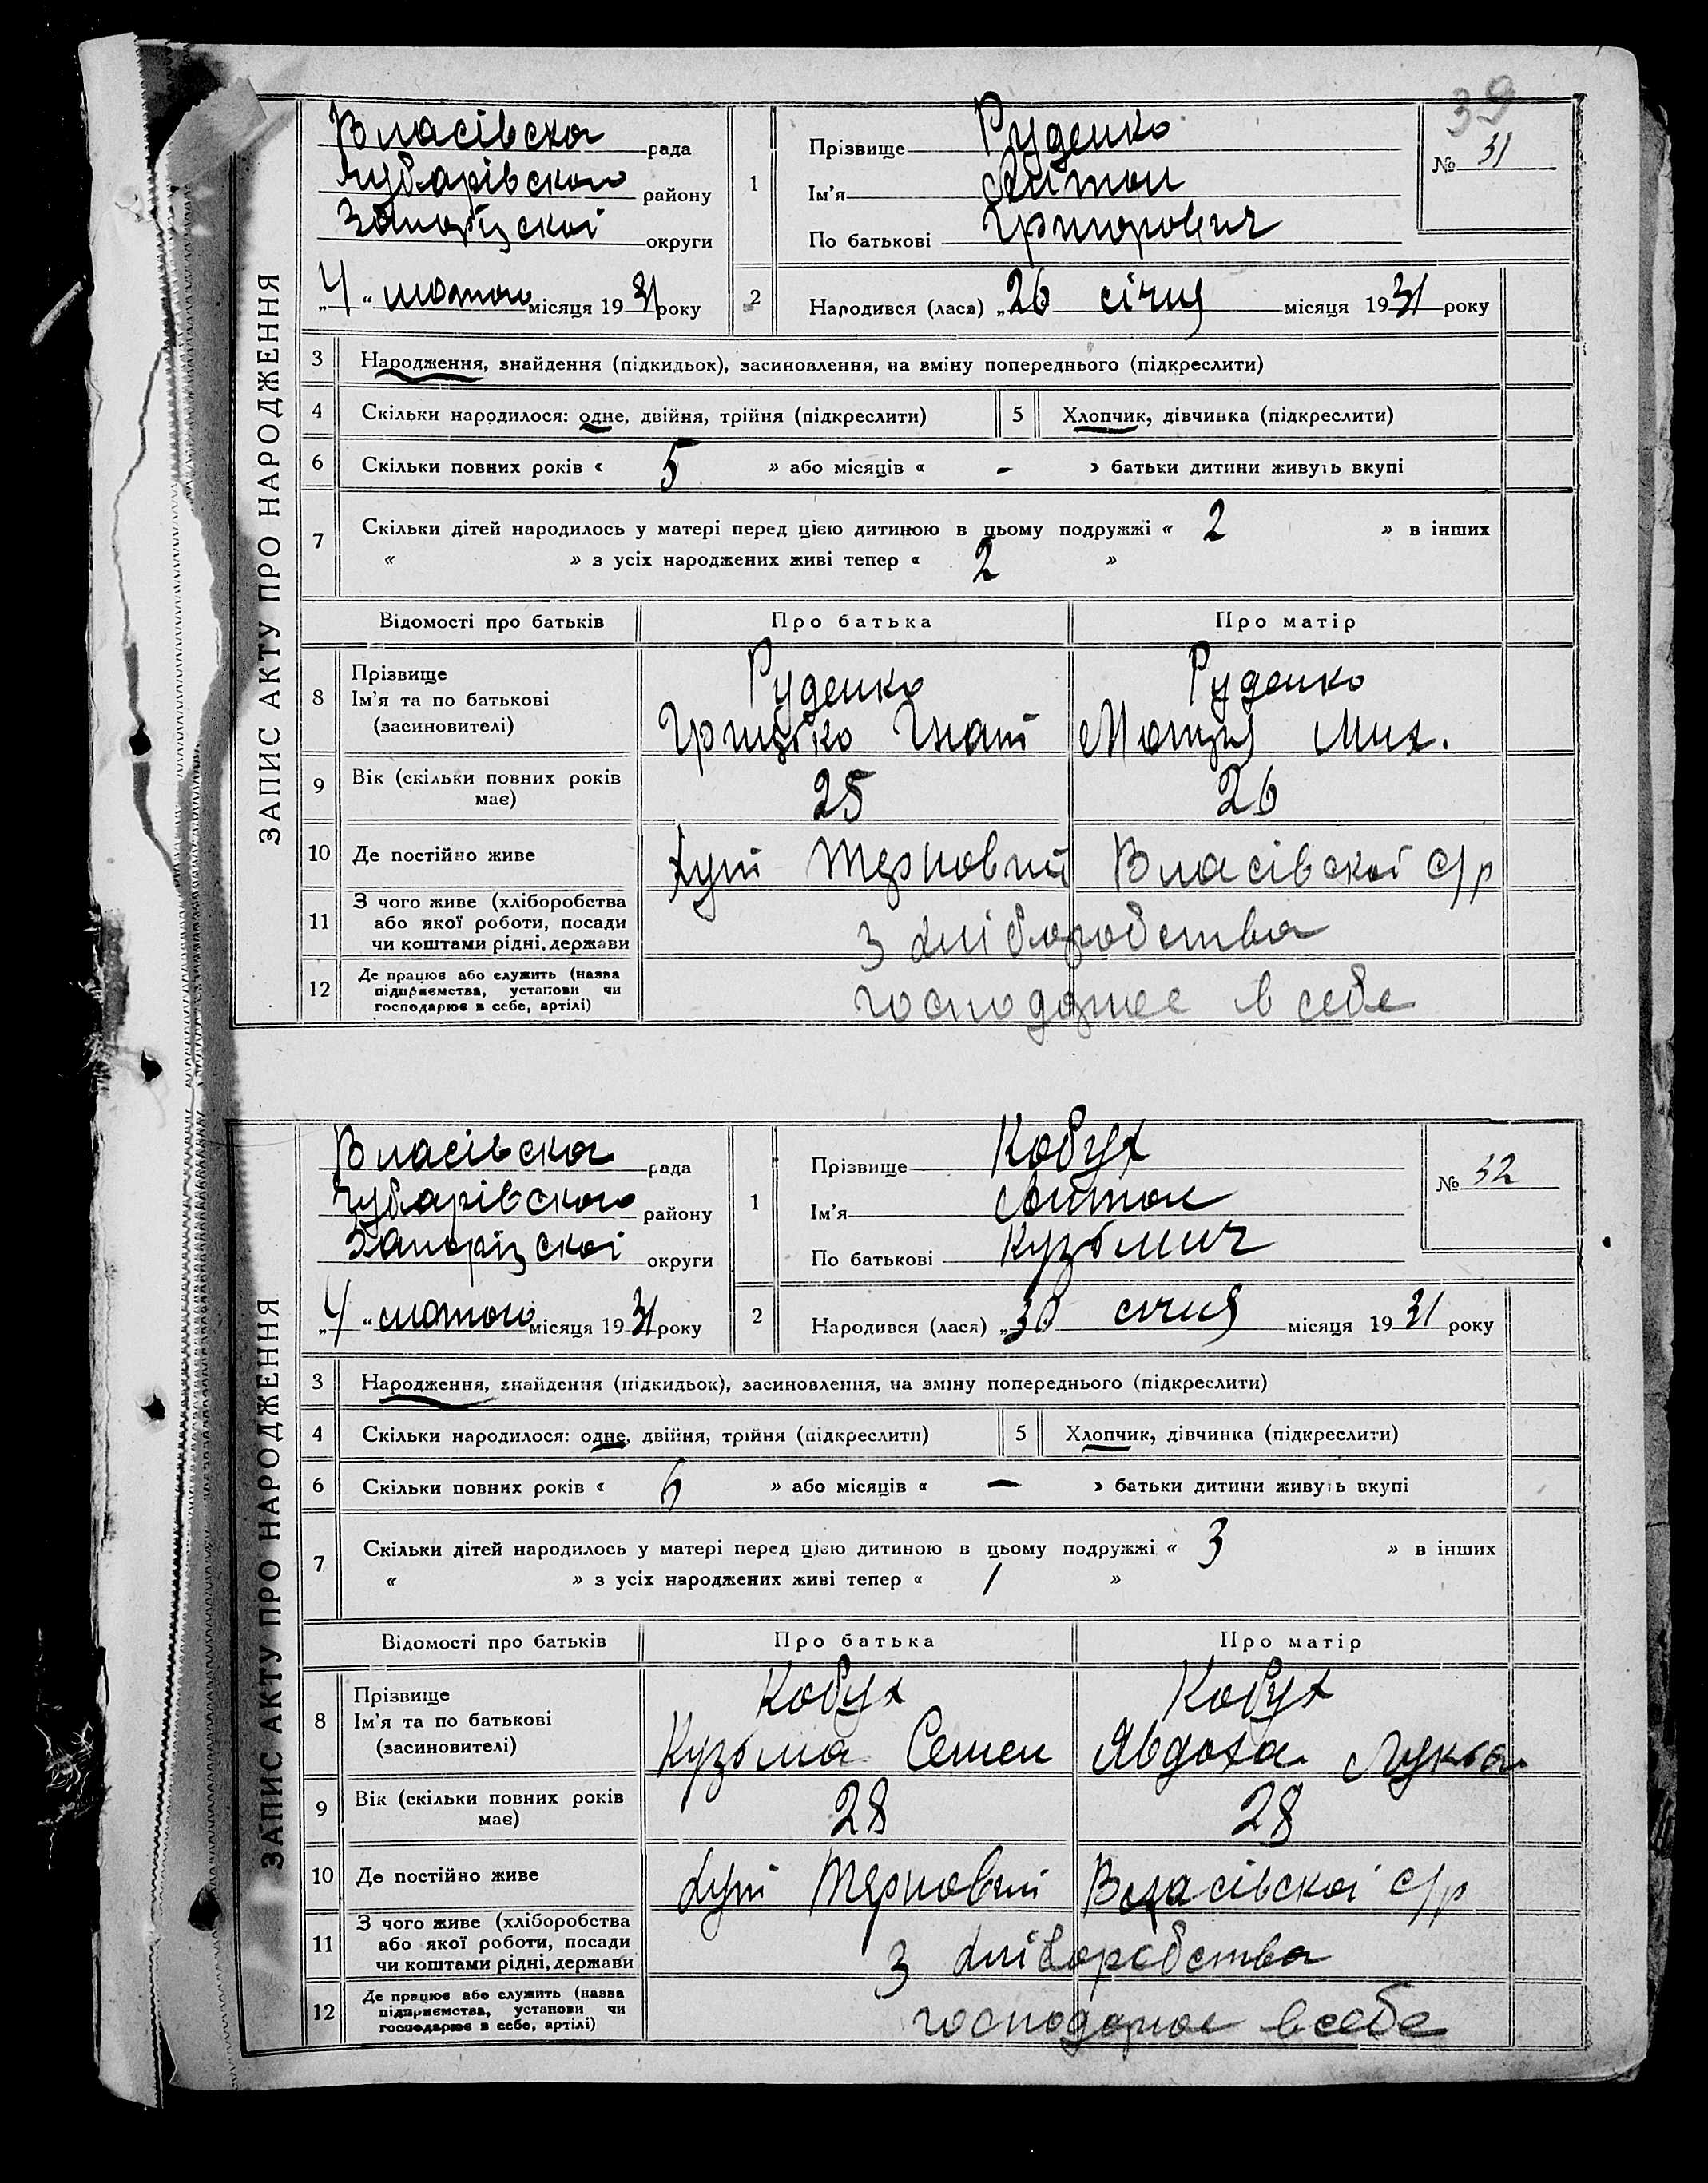 39
ЗАПИС АКТУ ПРО НАРОДЖЕННЯ
Власівска рада
Чубарівского району
Запоріцскої округи
„4“ лютого місяця 1931 року
1
Прізвище Руденко
Ім'я Антон
По батькові Григорович
№ 31
2 Народився (лася) „26 січня місяця 1931 року
3 Народження, знайдення (підкидьок), засиновлення, на зміну попереднього (підкреслити)
4 Скільки народилося: одне, двійня, трійня (підкреслити) 5 Хлопчик, дівчинка (підкреслити)
6 Скільки повних років « 5 » або місяців « - » батьки дитини живуть вкупі
7 Скільки дітей народилось у матері перед цією дитиною в цьому подружжі « 2 » в інших
« » з усіх народжених живі тепер « 2 »
Відомості про батьків Про батька Про матір
8 Прізвище
Ім'я та по батькові
(засиновителі)
Руденко
Грицько Гнат
Руденко
Мотря Мих.
9 Вік (скільки повних років
має)
25 26
10 Де постійно живе Хут Терновий Власівскої с/р
11 З чого живе (хліборобства
або якої роботи, посади
чи коштами рідні, держави
З хліборобства
12 Де працює або служить (назва
підприємства, установи чи
господарює в себе, артілі)
господарює в себе
ЗАПИС АКТУ ПРО НАРОДЖЕННЯ
Власівска рада
Чубарівского району
Запоріцскої округи
„4“ лютого місяця 1931 року
1
Прізвище Кобух
Ім'я Антон
По батькові Кузьмич
№ 32
2 Народився (лася) „30 січня місяця 1931 року
3 Народження, знайдення (підкидьок), засиновлення, на зміну попереднього (підкреслити)
4 Скільки народилося: одне, двійня, трійня (підкреслити) 5 Хлопчик, дівчинка (підкреслити)
6 Скільки повних років « 6 » або місяців « — » батьки дитини живуть вкупі
7 Скільки дітей народилось у матері перед цією дитиною в цьому подружжі « 3 » в інших
« » з усіх народжених живі тепер « 1 »
Відомості про батьків Про батька Про матір
8 Прізвище
Ім'я та по батькові
(засиновителі)
Кобух
Кузьма Семен
Кобух
Явдоха Лукьа.
9 Вік (скільки повних років
має)
28 28
10 Де постійно живе Хут Терновий Власівскої с/р
11 З чого живе (хліборобства
або якої роботи, посади
чи коштами рідні, держави
З хліборобства
12 Де працює або служить (назва
підприємства, установи чи
господарює в себе, артілі)
господарює в себе